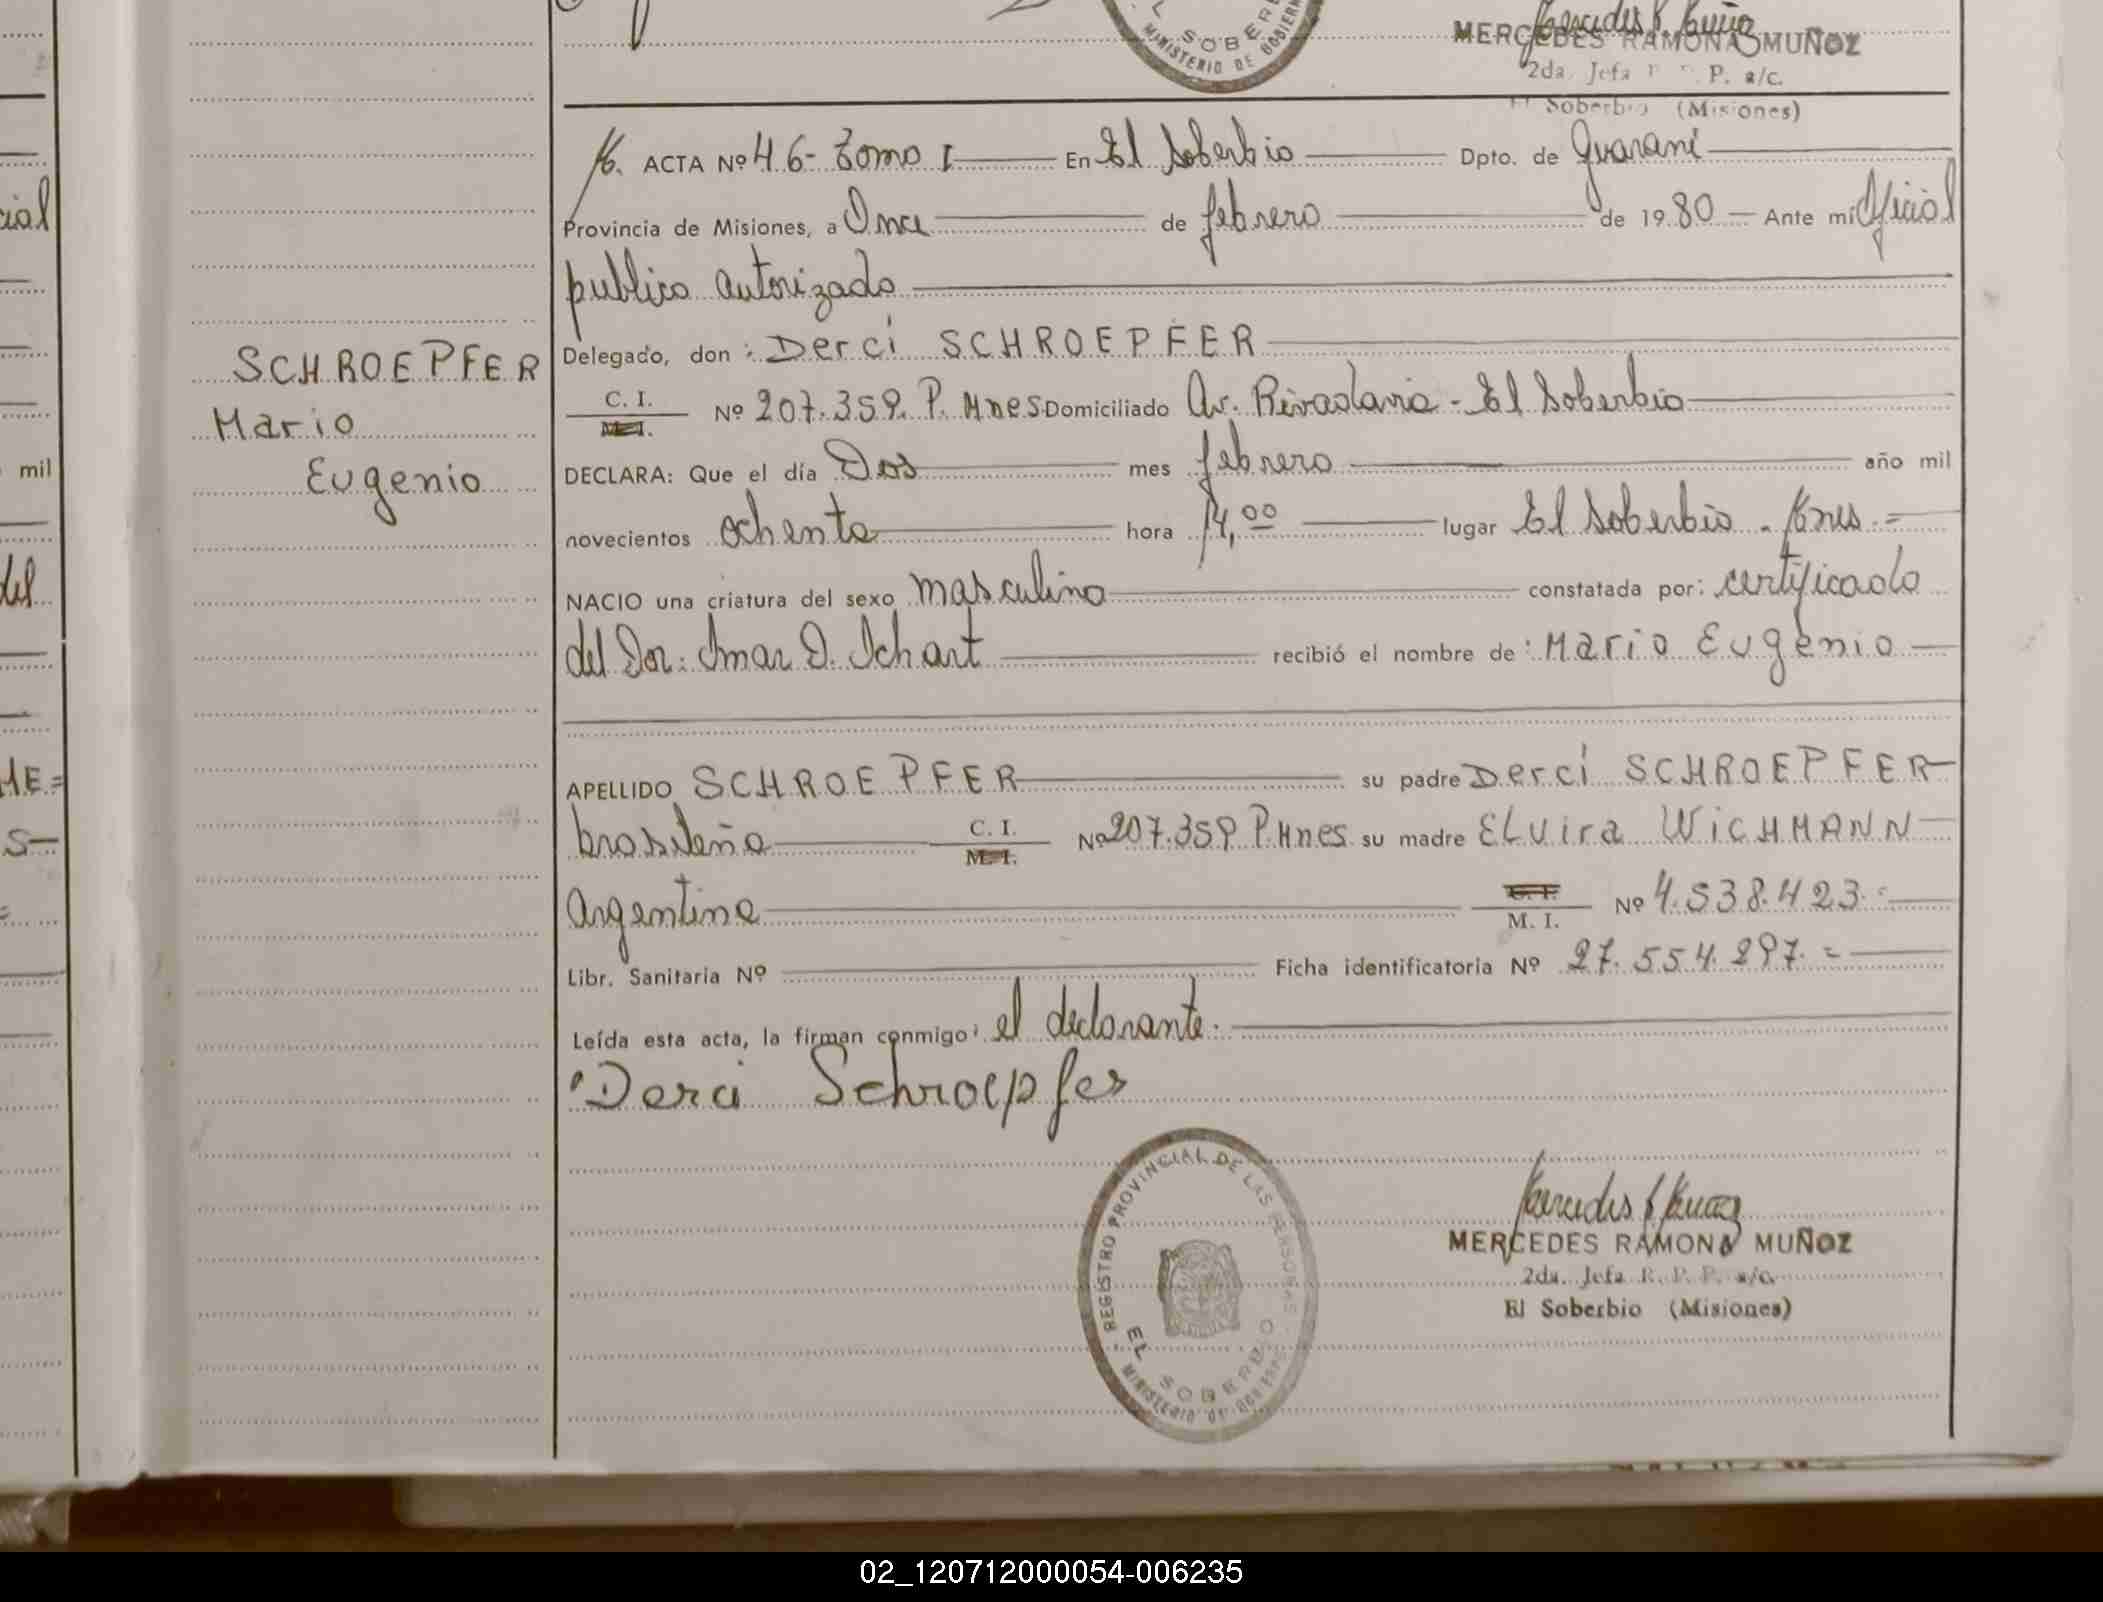 EL SOBER
MINISTERIO DE GOBIERN
MERCEDES RAMONA MUÑOZ
2da. Jefa P. a/c.
El Soberbio (Misiones)
ACTA Nº 46- Tomo I En El Soberbio Dpto. de Guaraní
Provincia de Misiones, a Once de febrero de 1980 Ante mi Oficial
publico autorizado
Delegado, don: Derci SCHROEPFER
C. I.
M. I.
Nº 207.359. P. Mnes Domiciliado Av. Rivadavia - El Soberbio
DECLARA: Que el día Dos mes febrero año mil
novecientos ochenta hora 14,00 lugar El Soberbio - Mnes.=
NACIO una criatura del sexo masculino constatada por: certificado
del Dor: Omar D. Ichart recibió el nombre de: Mario Eugenio
APELLIDO SCHROEPFER su padre Derci SCHROEPFER
brasileña C. I. Nº 207.359 P.Mnes su madre ELvira WiCHMANN
M. I.
Argentina C. I. Nº 4.538.423.-
M. I.
Libr. Sanitaria Nº Ficha identificatoria Nº 27.554.297.=
Leída esta acta, la firman conmigo: el declarante.
Derci Schroepfer
SCHROEPFER
Mario
Eugenio
REGISTRO PROVINCIAL DE LAS PERSONAS
EL SOBERBIO
MINISTERIO DE GOBIERNO
MERCEDES RAMONA MUÑOZ
2da. Jefa R. P. P. a/c.
El Soberbio (Misiones)
cial
mil
del
ME=
S-
02_120712000054-006235